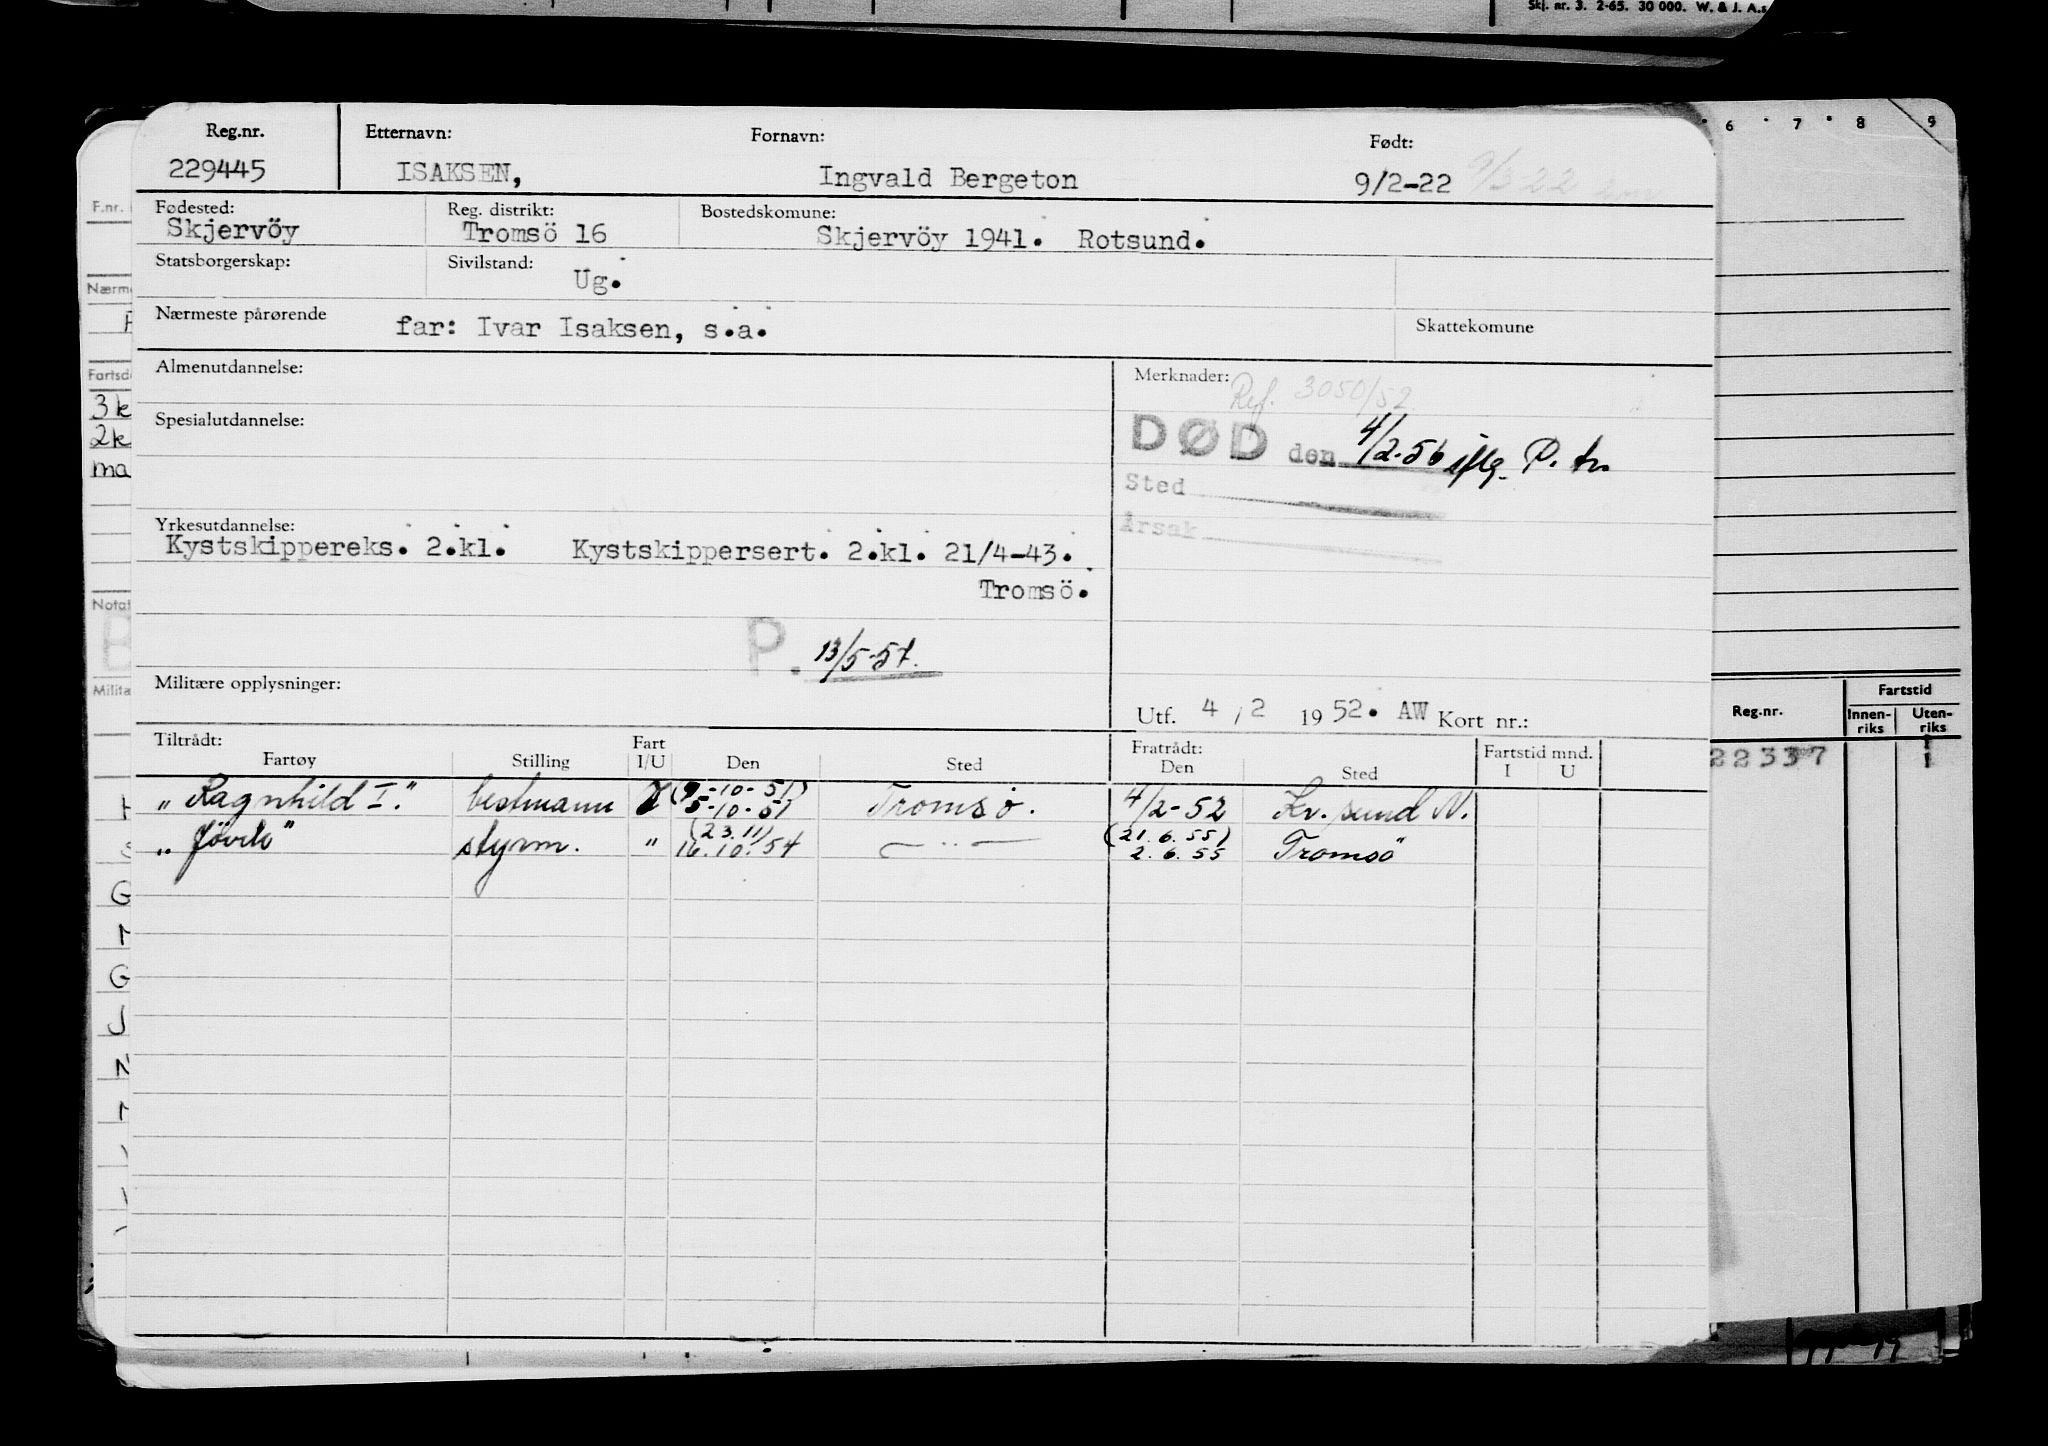 Skj. nr. 3. 2-65. 30 000. W. & J. A.s
6 7 8 9
Reg.nr. Etternavn: Fornavn: Født:
229445 ISAKSEN, Ingvald Bergeton 9/2-22 9/3-22
F.nr. Fødested: Reg. distrikt: Bostedskomune:
Skjervöy Tromsö 16 Skjervöy 1941. Rotsund.
Statsborgerskap: Sivilstand:
Ug.
Nærme Nærmeste pårørende far: Ivar Isaksen, s.a. Skattekomune
Fartsd Almenutdannelse: Merknader: Ref. 3050/52
3k
DØD den 4/2-56 iflg. P. tr.
2k Spesialutdannelse:
ma
Sted
Årsak
Yrkesutdannelse:
Kystskippereks. 2.kl. Kystskippersert. 2.kl. 21/4-43.
Tromsö.
Notat
P. 13/5-57.
Milita Militære opplysninger:
Utf. 4 / 2 1952. AW Kort nr.:
Reg.nr. Fartstid
Innen-riks Uten-riks
22337 1
Tiltrådt: Fart Fratrådt: Fartstid mnd.
Fartøy Stilling I/U Den Sted Den Sted I U
(9-10-51)
"Ragnhild I." bestmann 5-10-51 Tromsö. 4/2-52 Kr. sund N.
(23.11) (21.6.55)
"Jövik" styrm. " 16.10.54 — " — 2.6.55 Tromsö
G
G
J
N